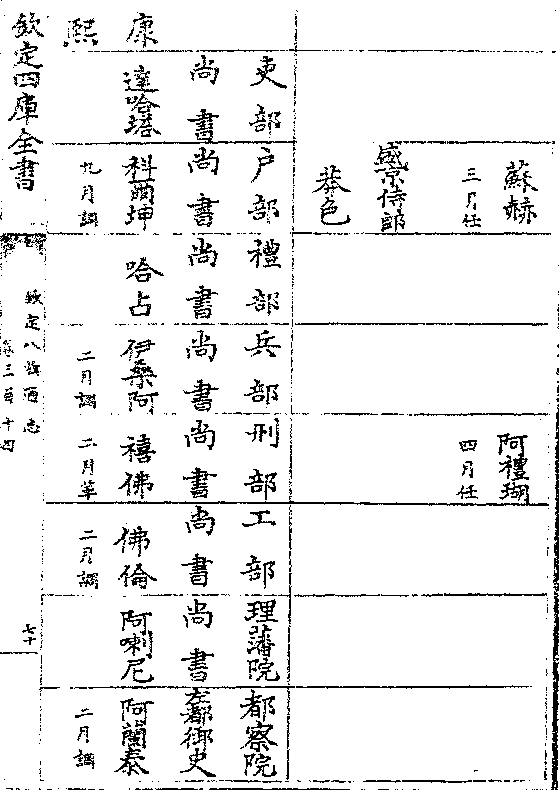 蘇赫
三月任
盛京侍郎
莽色
阿禮瑚
四月任
吏部
尚書
達哈塔
戶部
尚書
科爾坤
九月調
禮部
尚書
哈占
兵部
尚書
伊桑阿
二月調
刑部
尚書
禧佛
二月革
工部
尚書
佛倫
二月調
理藩院
尚書
阿喇尼
都察院
左都御史
阿蘭泰
二月調
康熙
欽定四庫全書
欽定八旗通志
卷三百十四
七十